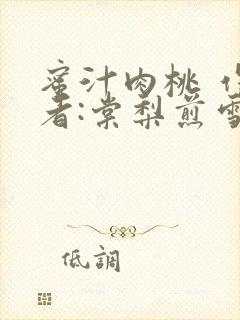 蜜汁肉桃
者:棠梨煎雪
低調